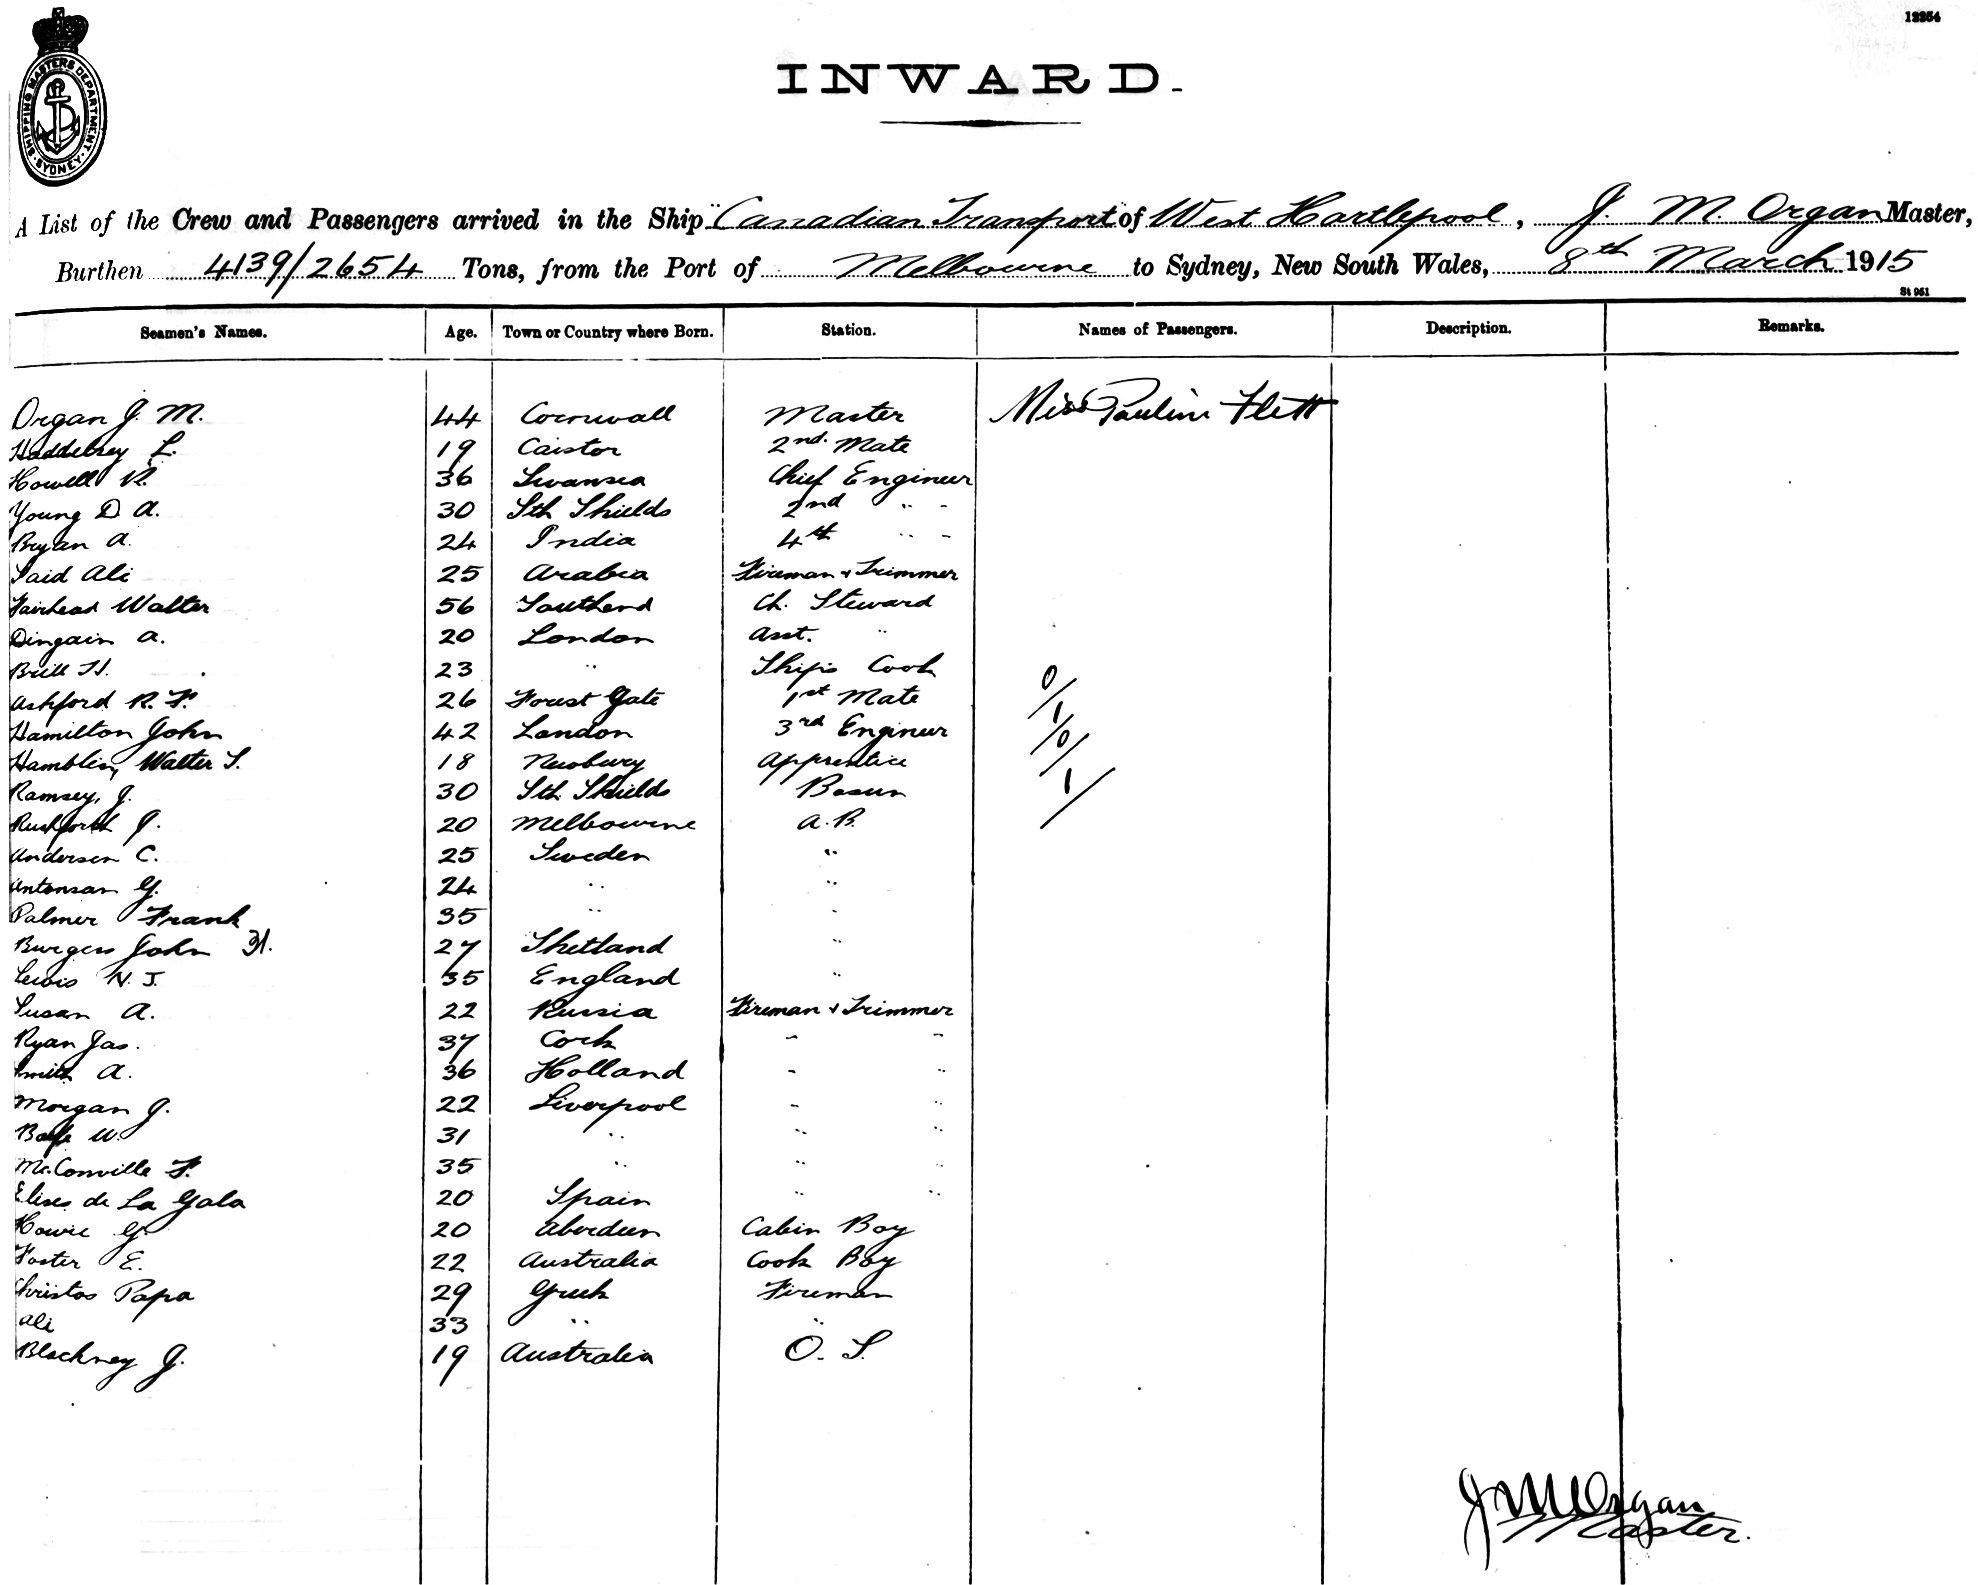 12254
SHIPPING MASTERS DEPARTMENT. SYDNEY.
INWARD.
A List of the Crew and Passengers arrived in the Ship "Canadian Transport" of West Hartlepool, J. M. Organ Master,
Burthen 4139/2654 Tons, from the Port of Melbourne to Sydney, New South Wales, 8th March 1915
St 951
Seamen's Names. Age. Town or Country where Born. Station. Names of Passengers. Description. Remarks.
Organ J. M. 44 Cornwall Master Miss Pauline Flett
Haddelsey L. 19 Caistor 2nd. Mate
Howell R. 36 Swansea Chief Engineer
Young D A. 30 Sth Shields 2nd " "
Bryan A. 24 India 4th " "
Said Ali 25 Arabia Fireman & Trimmer
Fairhead Walter 56 Southend Ch. Steward
Dingain A. 20 London Asst. "
Brill H. 23 " Ship's Cook
Ashford R. F. 26 Forest Gate 1st Mate 0/
Hamilton John 42 London 3rd Engineer 1/
Hamblin, Walter S. 18 Newbury Apprentice 0/
Ramsey, J. 30 Sth Shields Bosun 1/
Rushforth J. 20 Melbourne A.B.
Andersen C. 25 Sweden "
Antonsan G. 24 " "
Palmer Frank 35 " "
Burgess John H. 27 Shetland "
Lewis N. J. 35 England "
Susan A. 22 Russia Fireman & Trimmer
Ryan Jas. 37 Cork " "
Smith A. 36 Holland " "
Morgan J. 22 Liverpool " "
W. 31 " " "
McConville F. 35 " " "
Elises de La Gala 20 Spain " "
Howie G. 20 Aberdeen Cabin Boy
Foster E. 22 Australia Cook Boy
Christos Papa 29 Greek Fireman
Ali 33 " "
Blackney J. 19 Australia O. S.
J M Organ
Master.